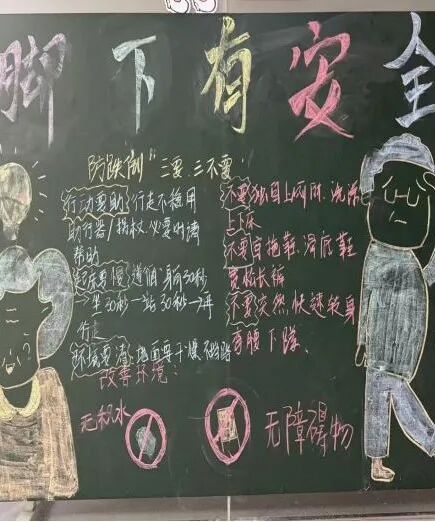 脚下有安全
防跌倒"三要三不要"
行动要助 行走不稳用
助行器/拐杖 必要时请
帮助
起床要慢 遵循 躺30秒
→坐30秒→站30秒→再
行走
环境要清 地面要干燥 不
改善环境:
不要独自上厕所、洗澡
上下床
不要穿拖鞋、湿底鞋
宽松长裤
不要突然快速转身
弯腰下蹲、
无积水
无障碍物